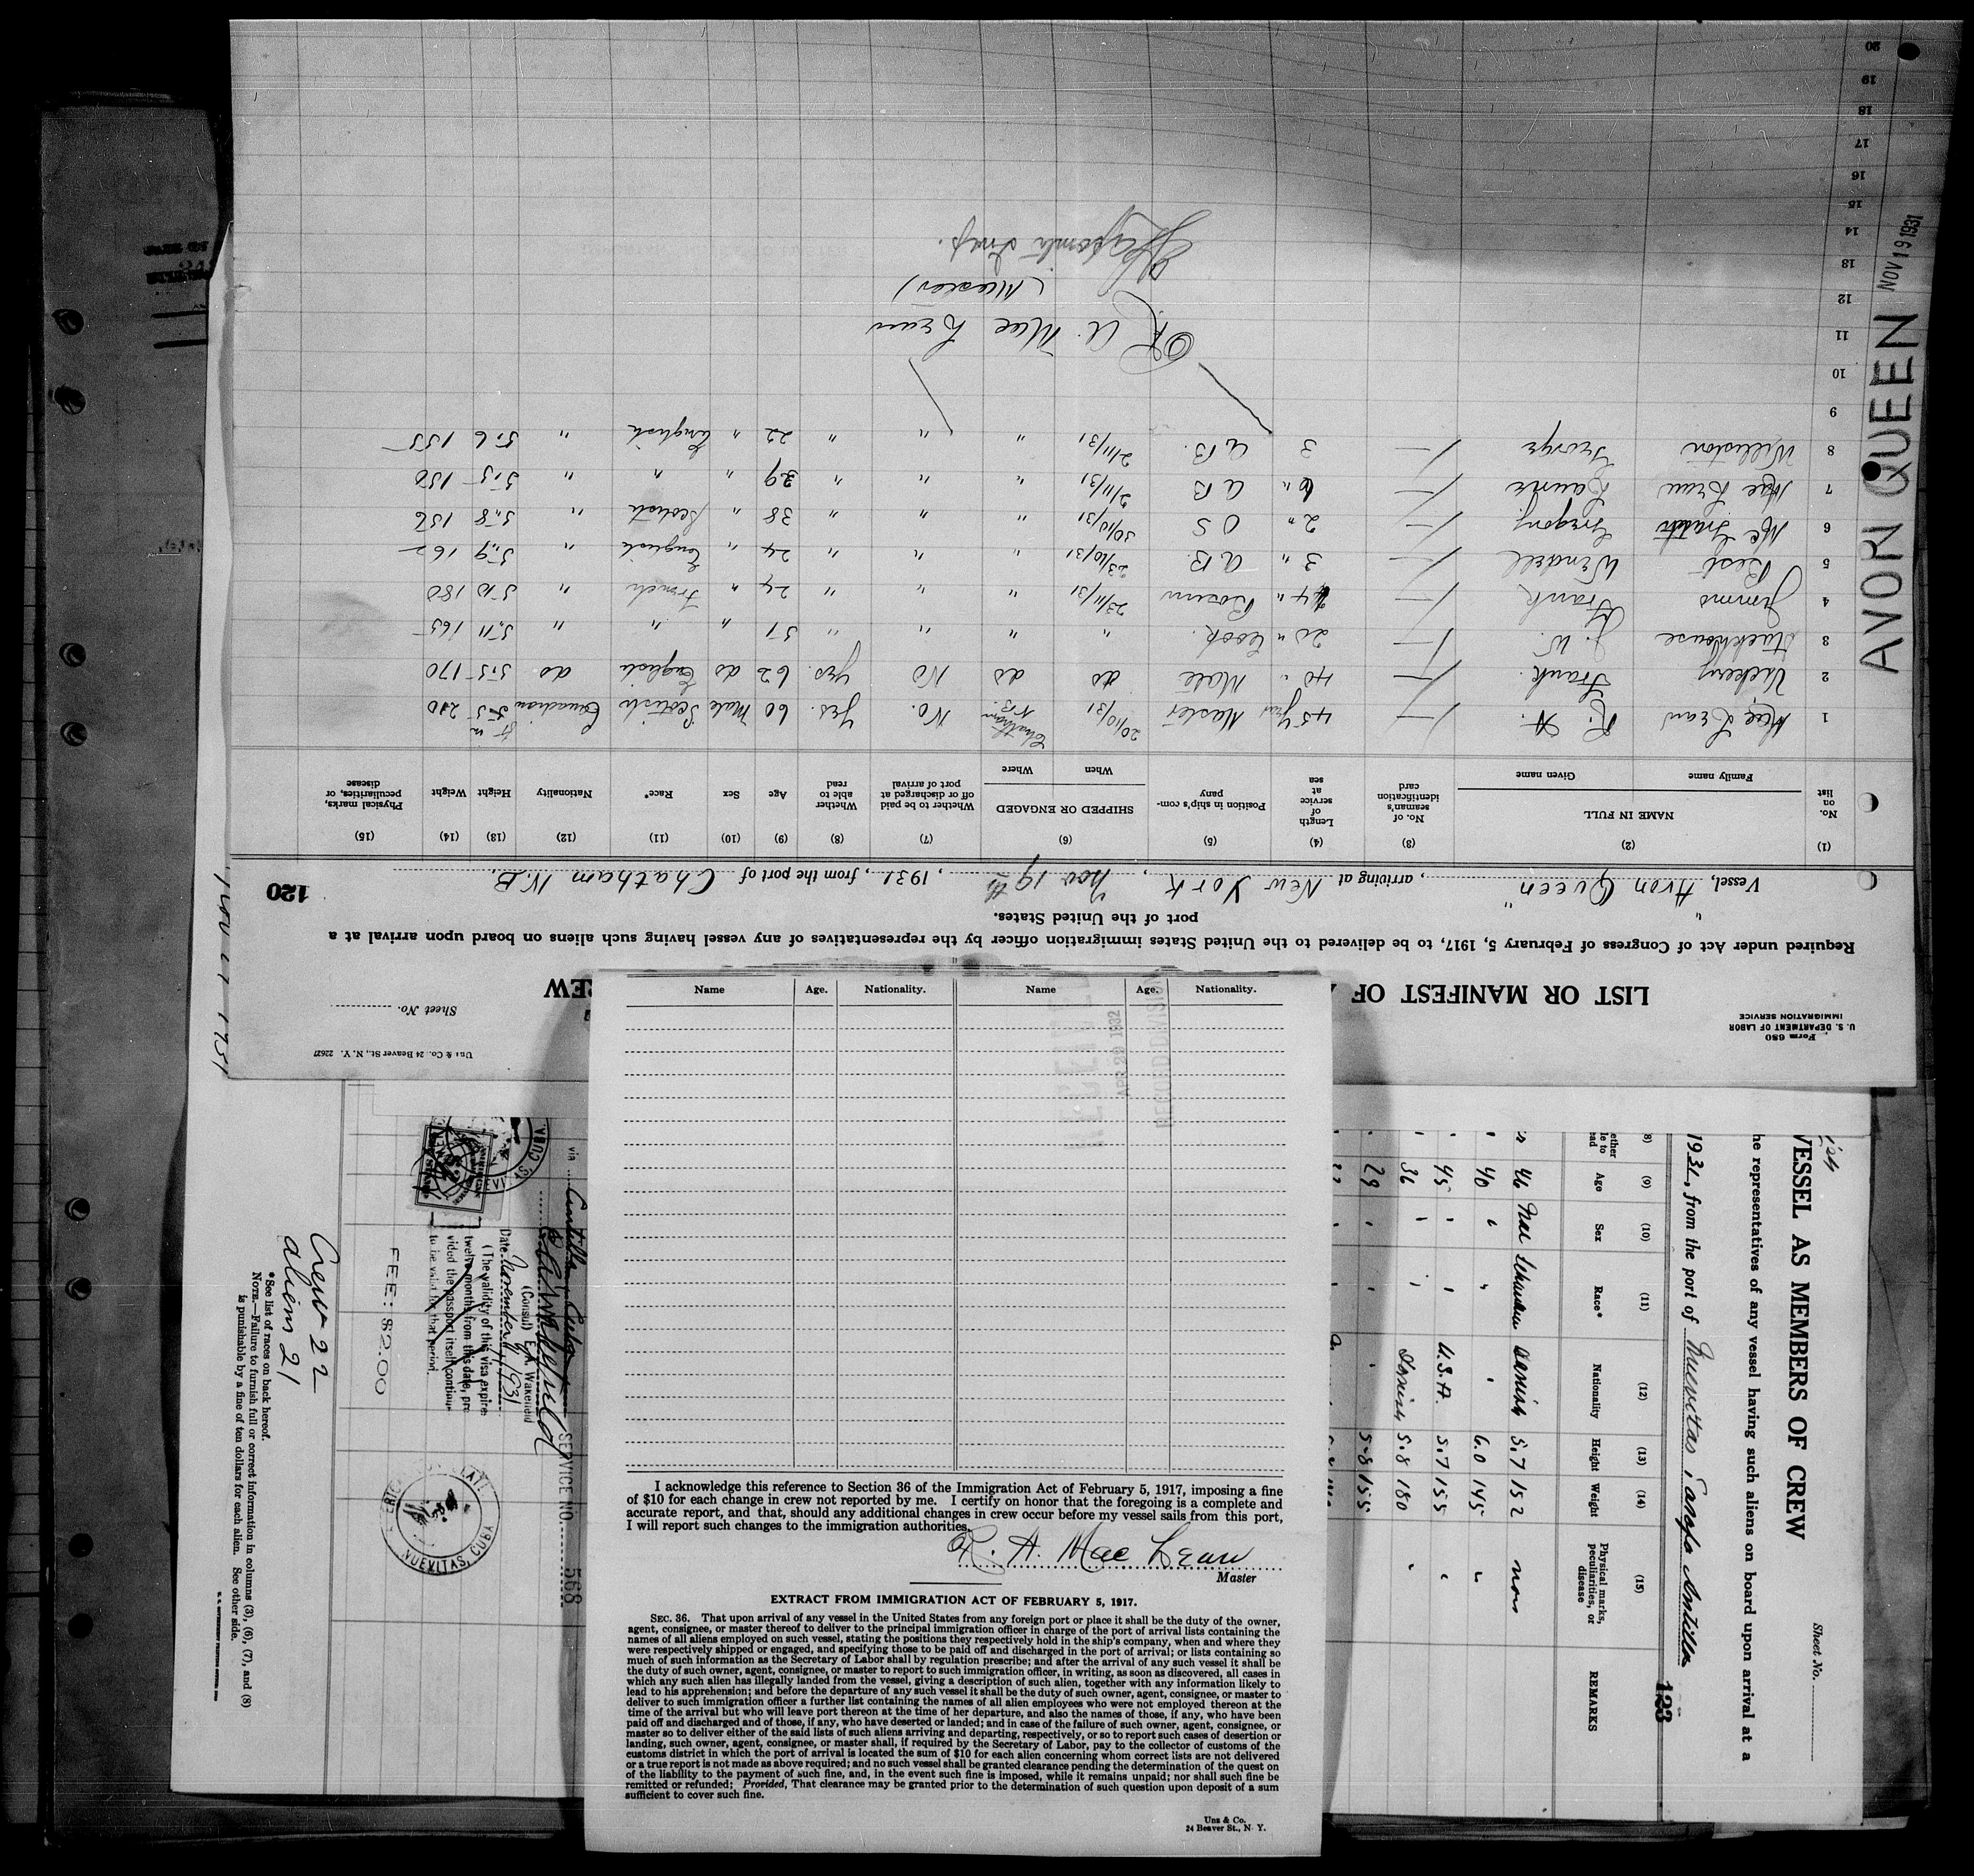 Form 680
U. S. DEPARTMENT OF LABOR
IMMIGRATION SERVICE
Uns & Co. 24 Beaver St., N. Y. 22627
Sheet No.
LIST OR MANIFEST OF
REW
Required under Act of Congress of February 5, 1917, to be delivered to the United States immigration officer by the representatives of any vessel having such aliens on board upon arrival at a
port of the United States.
Vessel, "Avon Queen", arriving at New York, Nov 19th, 1931, from the port of Chatham N.B.
120
(1) (2) (3) (4) (5) (6) (7) (8) (9) (10) (11) (12) (13) (14) (15)
No. on list NAME IN FULL Family name Given name No. of seaman's identification card Length of service at sea Position in ship's company SHIPPED OR ENGAGED When Where Whether to be paid off or discharged at port of arrival Whether able to read Age Sex Race* Nationality Height Weight Physical marks, peculiarities, or disease
1 Mac Lean R. A. — 45 Yrs Master 20/10/31 Chatham N.B. No. Yes. 60 Male Scotish Canadian 5-5 210
2 Vickery Frank. — 40 " Mate do do No Yes. 62 do English do 5-5 170
3 Stackhouse J. W. — 20 " Cook. " " " " 51 " " " 5.11 165
4 Jimmo Frank — 4 " Bosun 23/11/31 " " " 24 " French " 5.10 180
5 Best Wendell — 3 " A.B. 23/10/31 " " " 24 " English " 5.9 162
6 Mc Gregory — 2 " O S 30/10/31 " " " 38 " Scotish " 5.8 156
7 Mac Lean Laurie — 6 " A B 2/11/31 " " " 39 " " " 5.5 150
8 Williston George — 3 A.B. 2/11/31 " " " 22 " English " 5.6 155
9
10
11
12
13
14
15
16
17
18
19
20
R. A. Mac Lean
(Master)
Insp.
AVON QUEEN
NOV 19 1931
Name Age. Nationality. Name Age. Nationality.
RECEIVED
APR 29 1932
RECORD DIVISION
I acknowledge this reference to Section 36 of the Immigration Act of February 5, 1917, imposing a fine
of $10 for each change in crew not reported by me. I certify on honor that the foregoing is a complete and
accurate report, and that, should any additional changes in crew occur before my vessel sails from this port,
I will report such changes to the immigration authorities.
R. A. Mac Lean
Master
EXTRACT FROM IMMIGRATION ACT OF FEBRUARY 5, 1917.
SEC. 36. That upon arrival of any vessel in the United States from any foreign port or place it shall be the duty of the owner,
agent, consignee, or master thereof to deliver to the principal immigration officer in charge of the port of arrival lists containing the
names of all aliens employed on such vessel, stating the positions they respectively hold in the ship's company, when and where they
were respectively shipped or engaged, and specifying those to be paid off and discharged in the port of arrival; or lists containing so
much of such information as the Secretary of Labor shall by regulation prescribe; and after the arrival of any such vessel it shall be
the duty of such owner, agent, consignee, or master to report to such immigration officer, in writing, as soon as discovered, all cases in
which any such alien has illegally landed from the vessel, giving a description of such alien, together with any information likely to
lead to his apprehension; and before the departure of any such vessel it shall be the duty of such owner, agent, consignee, or master to
deliver to such immigration officer a further list containing the names of all alien employees who were not employed thereon at the
time of the arrival but who will leave port thereon at the time of her departure, and also the names of those, if any, who have been
paid off and discharged and of those, if any, who have deserted or landed; and in case of the failure of such owner, agent, consignee, or
master so to deliver either of the said lists of such aliens arriving and departing, respectively, or so to report such cases of desertion or
landing, such owner, agent, consignee, or master shall, if required by the Secretary of Labor, pay to the collector of customs of the
customs district in which the port of arrival is located the sum of $10 for each alien concerning whom correct lists are not delivered
or a true report is not made as above required; and no such vessel shall be granted clearance pending the determination of the quest on
of the liability to the payment of such fine, and, in the event such fine is imposed, while it remains unpaid; nor shall such fine be
remitted or refunded; Provided, That clearance may be granted prior to the determination of such question upon deposit of a sum
sufficient to cover such fine.
Uns & Co.
24 Beaver St., N. Y.
Sheet No.
VESSEL AS MEMBERS OF CREW
he representatives of any vessel having such aliens on board upon arrival at a
1931, from the port of Nuevitas, Tarafa Antilla
123
8) (9) (10) (11) (12) (13) (14) (15)
Age Sex Race* Nationality Height Weight Physical marks, peculiarities, or disease REMARKS
46 Danish 5.7 152 none
40 6.0 145
45 U.S.A. 5.7 155
36 Danish 5.8 180
29 5-8 155
via Antilla, Cuba
(Consul) E. A. Wakefield
Date November 1931
(The validity of this visa expires
twelve months from this date, pro
vided the passport itself continues
to be valid for that period.
SERVICE NO. 568
FEE: $2.00
NUEVITAS, CUBA
NUEVITAS, CUBA
Crew 22
aliens 21
*See list of races on back hereof.
NOTE.—Failure to furnish full or correct information in columns (3), (6), (7), and (8)
is punishable by a fine of ten dollars for each alien. See other side.